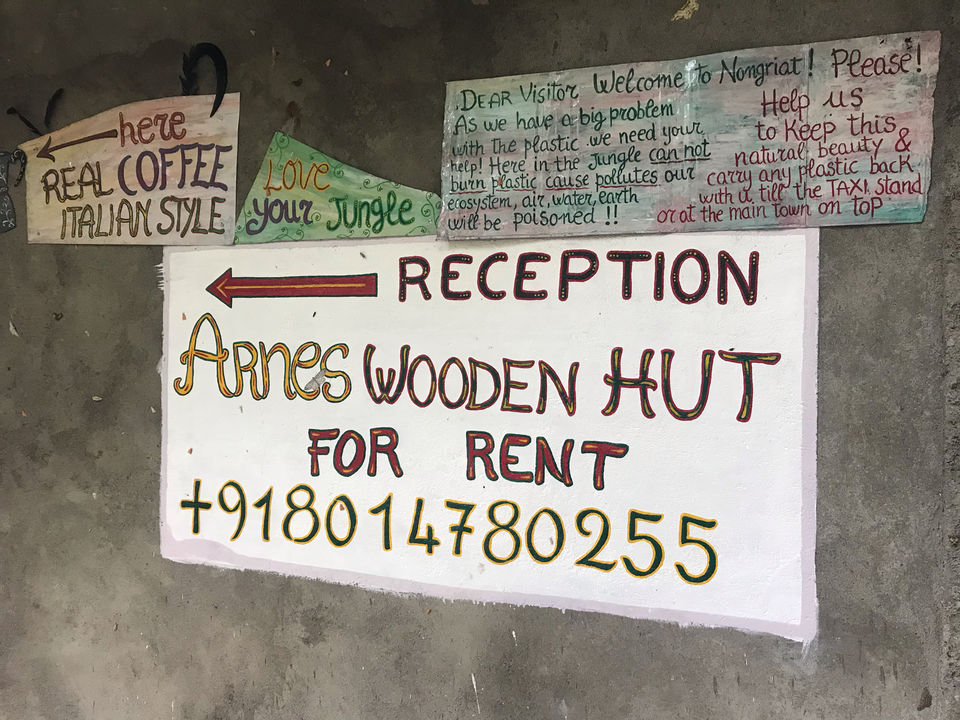 here
REAL COFFEE
ITALIAN STYLE
LOVE
your Jungle
DEAR Visitor Welcome to Nongriat! Please!
As we have a big problem
with the plastic we need your
help! Here in the Jungle can not
burn plastic cause pollutes our
ecosystem, air, water, earth
will be poisoned !!
Help us
to Keep this
natural beauty &
carry any plastic back
with u, till the TAXI stand
or at the main Town on top
RECEPTION
ARNES WOODEN HUT
FOR RENT
+918014780255